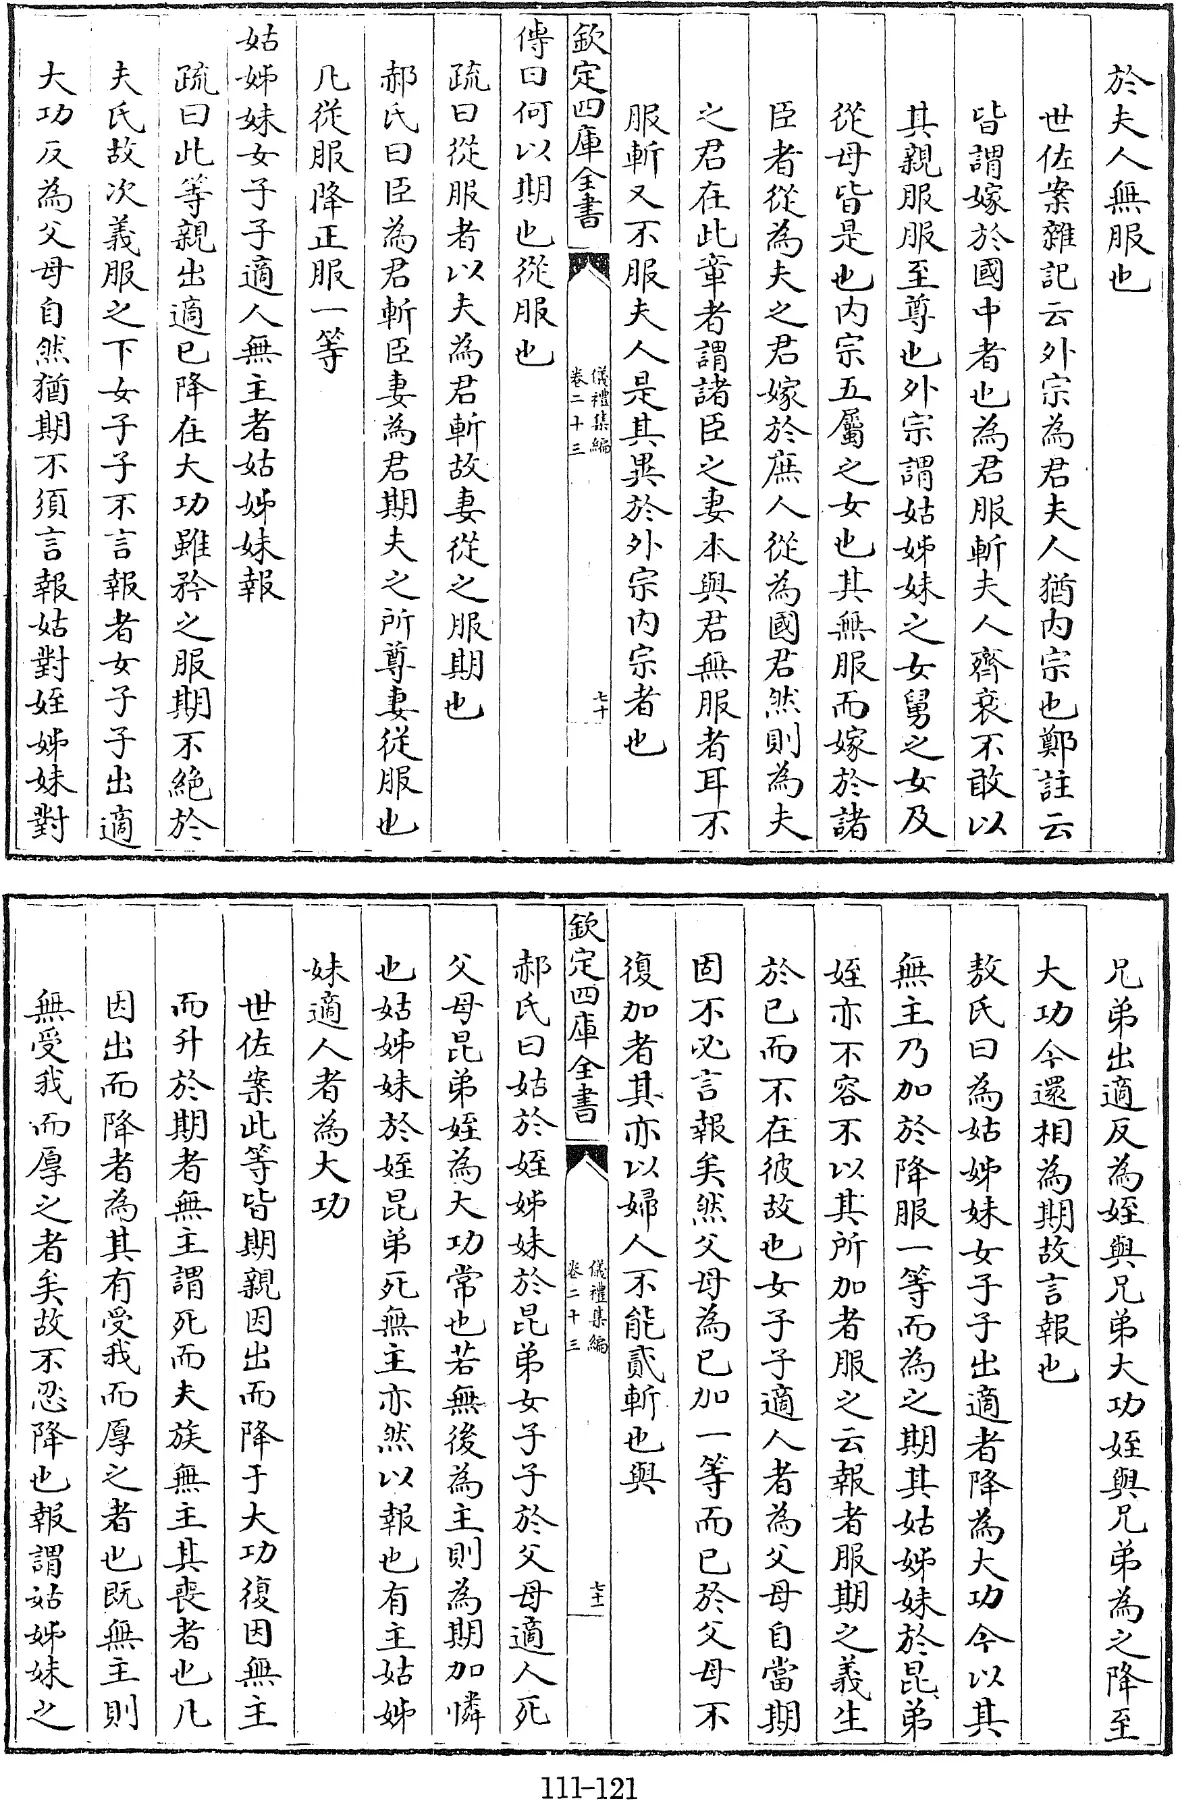 於夫人無服也
世佐案雜記云外宗為君夫人猶内宗也鄭註云
皆謂嫁於國中者也為君服斬夫人齊衰不敢以
其親服服至尊也外宗謂姑姊妹之女舅之女及
從母皆是也内宗五屬之女也其無服而嫁於諸
臣者從為夫之君嫁於庶人從為國君然則為夫
之君在此章者謂諸臣之妻本與君無服者耳不
服斬又不服夫人是其異於外宗内宗者也
欽定四庫全書
儀禮集編
卷二十三
七十
傳曰何以期也從服也
疏曰從服者以夫為君斬故妻從之服期也
郝氏曰臣為君斬臣妻為君期夫之所尊妻從服也
凡從服降正服一等
姑姊妹女子子適人無主者姑姊妹報
疏曰此等親出適已降在大功雖矜之服期不絶於
夫氏故次義服之下女子子不言報者女子子出適
大功反為父母自然猶期不須言報姑對姪姊妹對
兄弟出適反為姪與兄弟大功姪與兄弟為之降至
大功今還相為期故言報也
敖氏曰為姑姊妹女子子出適者降為大功今以其
無主乃加於降服一等而為之期其姑姊妹於昆弟
姪亦不容不以其所加者服之云報者服期之義生
於已而不在彼故也女子子適人者為父母自當期
固不必言報矣然父母為已加一等而已於父母不
復加者其亦以婦人不能貳斬也與
欽定四庫全書
儀禮集編
卷二十三
七十一
郝氏曰姑於姪姊妹於昆弟女子子於父母適人死
父母昆弟姪為大功常也若無後為主則為期加憐
也姑姊妹於姪昆弟死無主亦然以報也有主姑姊
妹適人者為大功
世佐案此等皆期親因出而降于大功復因無主
而升於期者無主謂死而夫族無主其喪者也凡
因出而降者為其有受我而厚之者也既無主則
無受我而厚之者矣故不忍降也報謂姑姊妹之
111-121